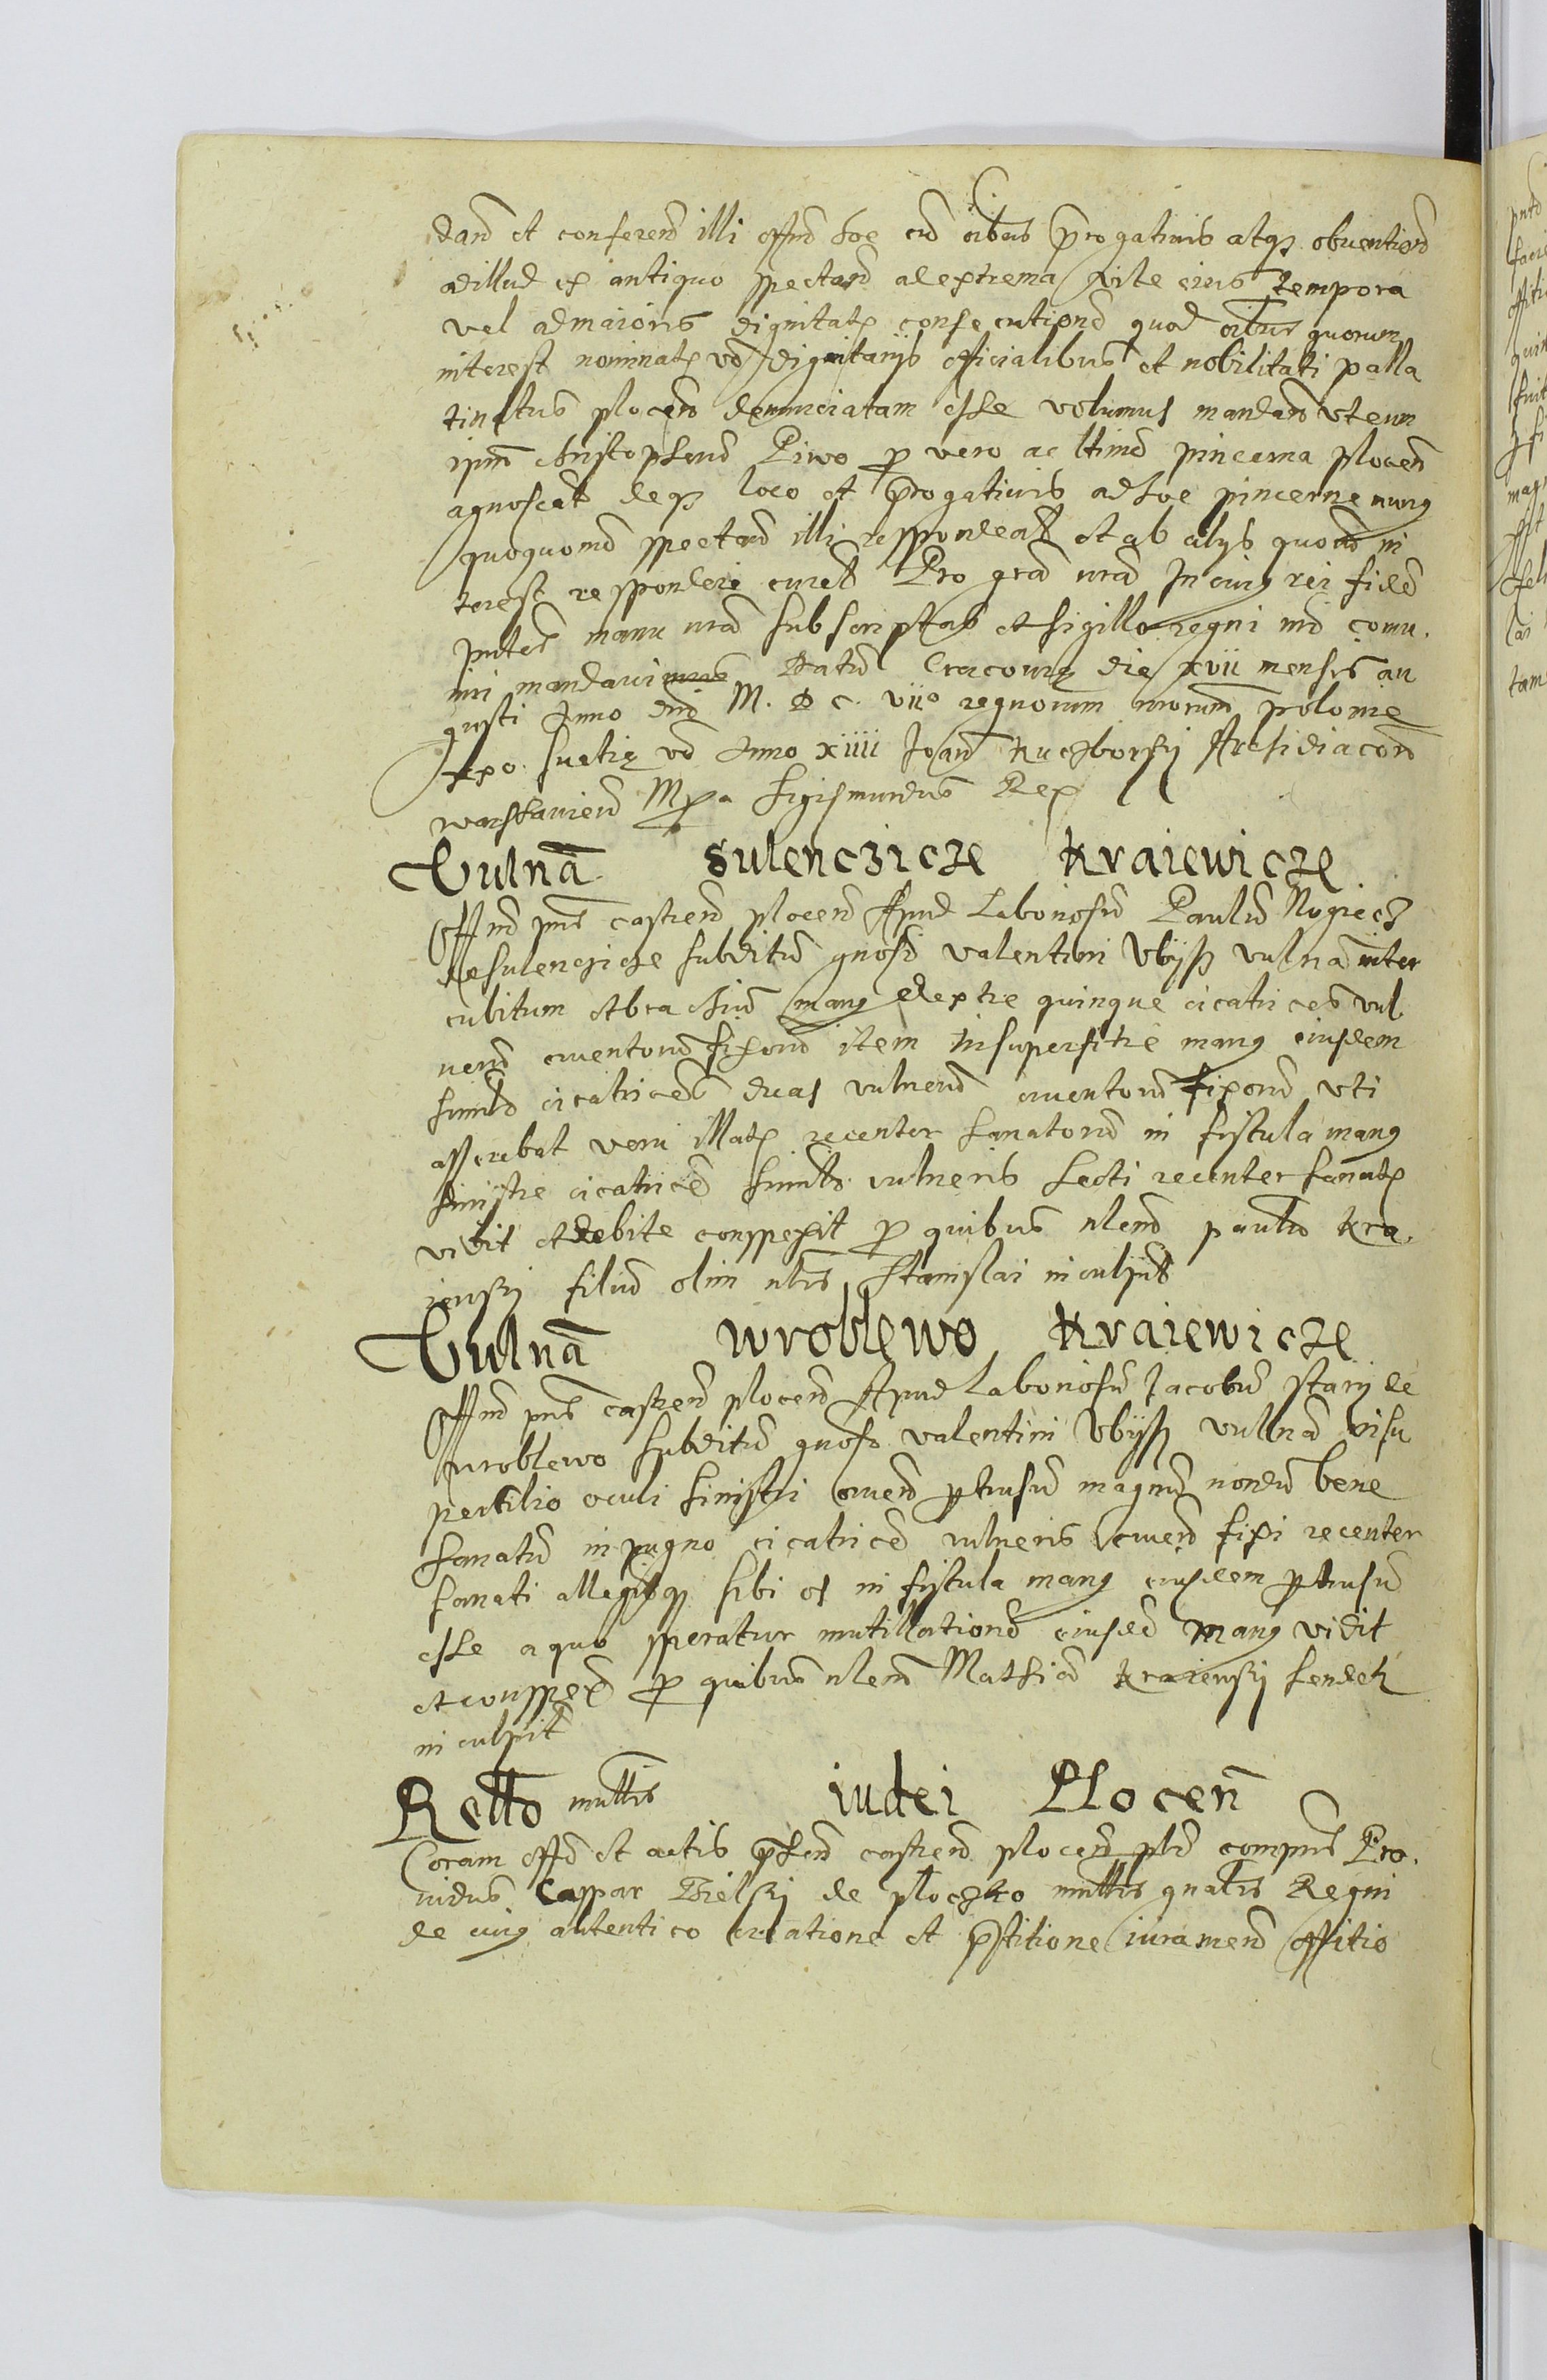 dand et conferend illi offm hoc cu oibus prerogativis atqz obventiond
ad illud ex antiquo spectand ad extrema vite eius tempora
vel ad maioris dignitatis consecutiond quod oibus quorum
interest nominatis vo dignitarijs officialibus et nobilitati palla
tinatus plocen denunciatam esse volumus mandand ut eum
ipsm christopherud Piwo p vero ac ltimo pincerna plocen
agnoscat deqz loco et prerogativis ad hoc pincerne munus
quoquomo spectand illi respondeat et ab alijs quoru in
terest responderi curet Pro gra nra In cuius rei fidem
pntes manu nra subscriptas et sigillo regni nri comu.
niri mandavimus Datum Cracovie die xvii mensis au
gusti Anno dni M. D C. viio regnorum nrorum polonie
xx o. suetie vo Anno xiiii Joan Kuczborski Archidiacon
warschavien Mpa Sigismundus Rex
Vulna Sulenczicze Kraiewicze
Offm pns castren plocen Apud Laboriosum Paulum Nogiecz
de sulenczicze subditum gnosi valentini Ubijss vulna inter
cubitum et brachium manus dextre quinque cicatrices vul
nerum cruentorum fixorum item in superficie manus eiusdem
similes cicatrices duas vulnerum cruentorum fixorum uti
asserebat veru illatis recenter sanatorum in fistula manus
sinistre cicatricem similem vulneris secti recenter sanatis
vidit et debite conspexit p quibus nlem paulum Kra.
iewski filium olim nlis Stanislai inculpat
Vulna wroblewo Kraiewicze
Offm pns castren plocen Apud Laboriosum Jacobum stary de
wroblewo subditum gnosi valentini Ubijss vulna in su
percilio oculi sinistri cruen ptusum magnum nondum bene
sanatum in pugno cicatricem vulneris cruen fixi recenter
sanati allegitqz sibi os in fistula manus eiusdem ptusum
esse a quo speratur mutillationem eiusdem manus vidit
et conspex p quibus nlem Mathiam Kraiewski
inculpit
Rello mltris iudei Plocen
Coram offo et actis pntibus castren plocen plr compns Pro.
vidus Caspar Bielski de ploczko mltris gnalis Regni
de cuius autentico creatione et prestitione iuramen offitio